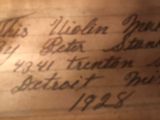 This Violin Made
By Peter
4241 Trenton
Detroit
1928